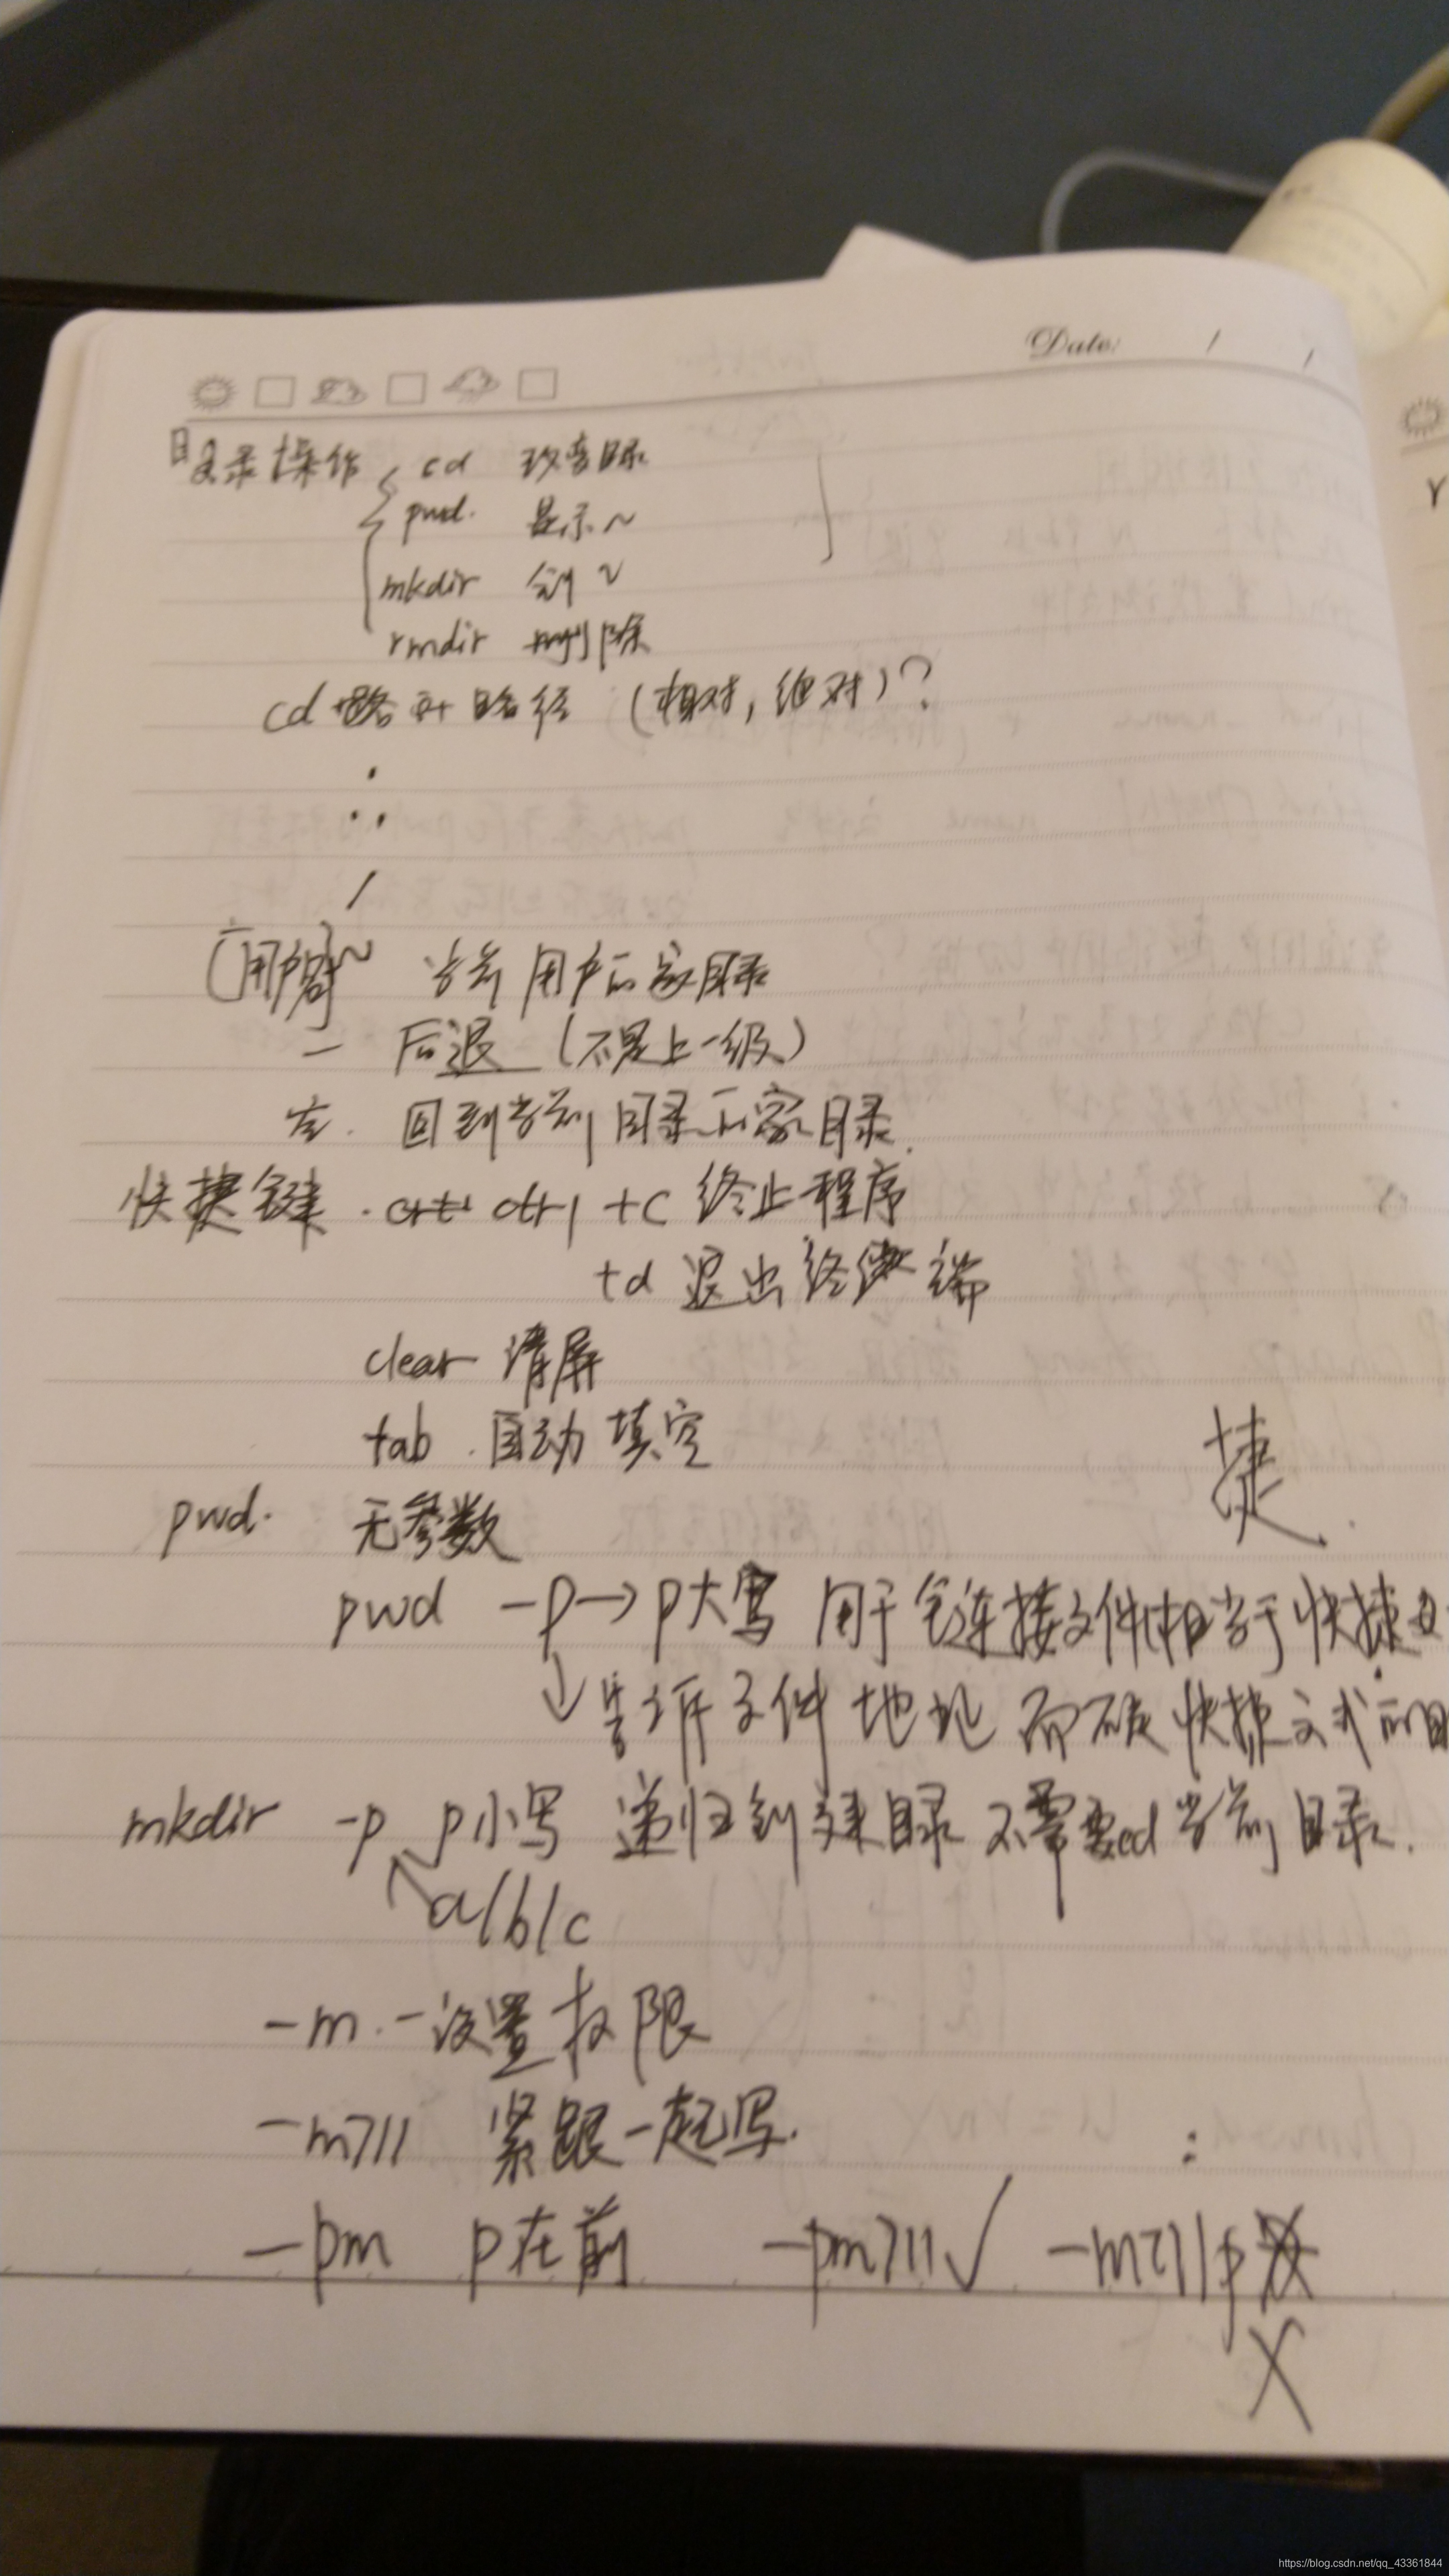 Date: / /
目录操作 cd 改变目录
pwd. 显示~
mkdir 创~
rmdir 删除
cd 路径 (相对, 绝对)?
.
..
/
[用户名] ~ 当前用户的家目录
- 后退 (不是上一级)
空. 回到当前目录的家目录.
快捷键. ctrl +c 终止程序
+d 退出终端
clear 清屏
tab. 自动填空
捷.
pwd. 无参数
pwd -p→p大写 用于 连接文件相当于快捷
↓告诉文件地址 而不是快捷方式的目
mkdir -p p小写 递归创建目录 不需要cd当前目录.
a/b/c
-m.-设置权限
-m711 紧跟一起写.
-pm p在前 -pm711√ -m711p
X
https://blog.csdn.net/qq_43361844